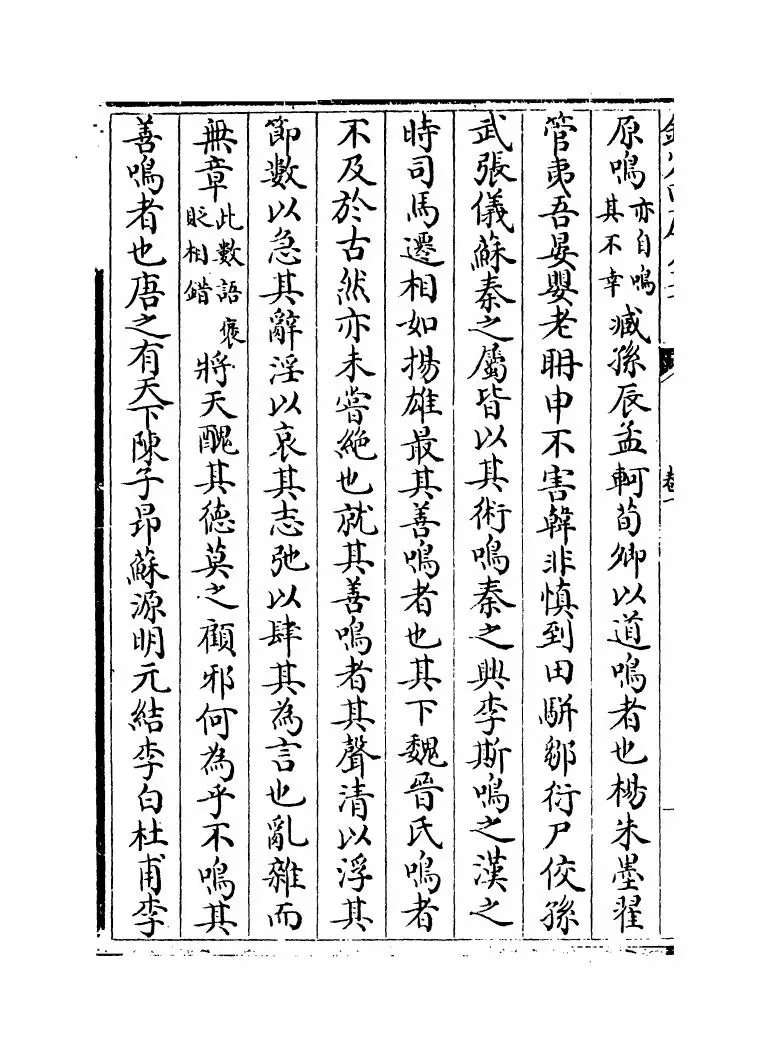 原鳴亦自鳴其不幸臧孫辰孟軻荀卿以道鳴者也楊朱墨翟
管夷吾晏嬰老聃申不害韓非慎到田駢鄒衍尸佼孫
武張儀蘇秦之屬皆以其術鳴秦之興李斯鳴之漢之
時司馬遷相如揚雄最其善鳴者也其下魏晉氏鳴者
不及於古然亦未嘗絶也就其善鳴者其聲清以浮其
節數以急其辭淫以哀其志弛以肆其為言也亂雜而
無章此數語褒貶相錯將天醜其德莫之顧邪何為乎不鳴其
善鳴者也唐之有天下陳子昂蘇源明元結李白杜甫李